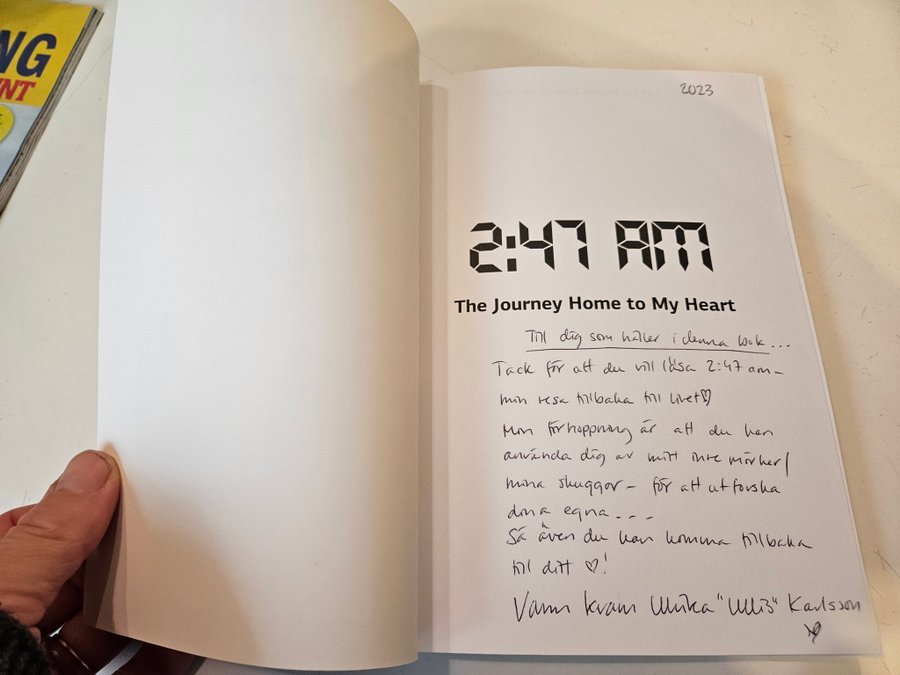 NG
NT
2023
2:47 AM
The Journey Home to My Heart
Till dig som håller i denna bok...
Tack för att du vill läsa 2:47 am –
min resa tillbaka till livet ♡
Min förhoppning är att du kan
använda dig av mitt inre mörker/
mina skuggor – för att utforska
dina egna - - -
Så även du kan komma tillbaka
till ditt ♡!
Varm kram Ulrika "Ulliz" Karlsson